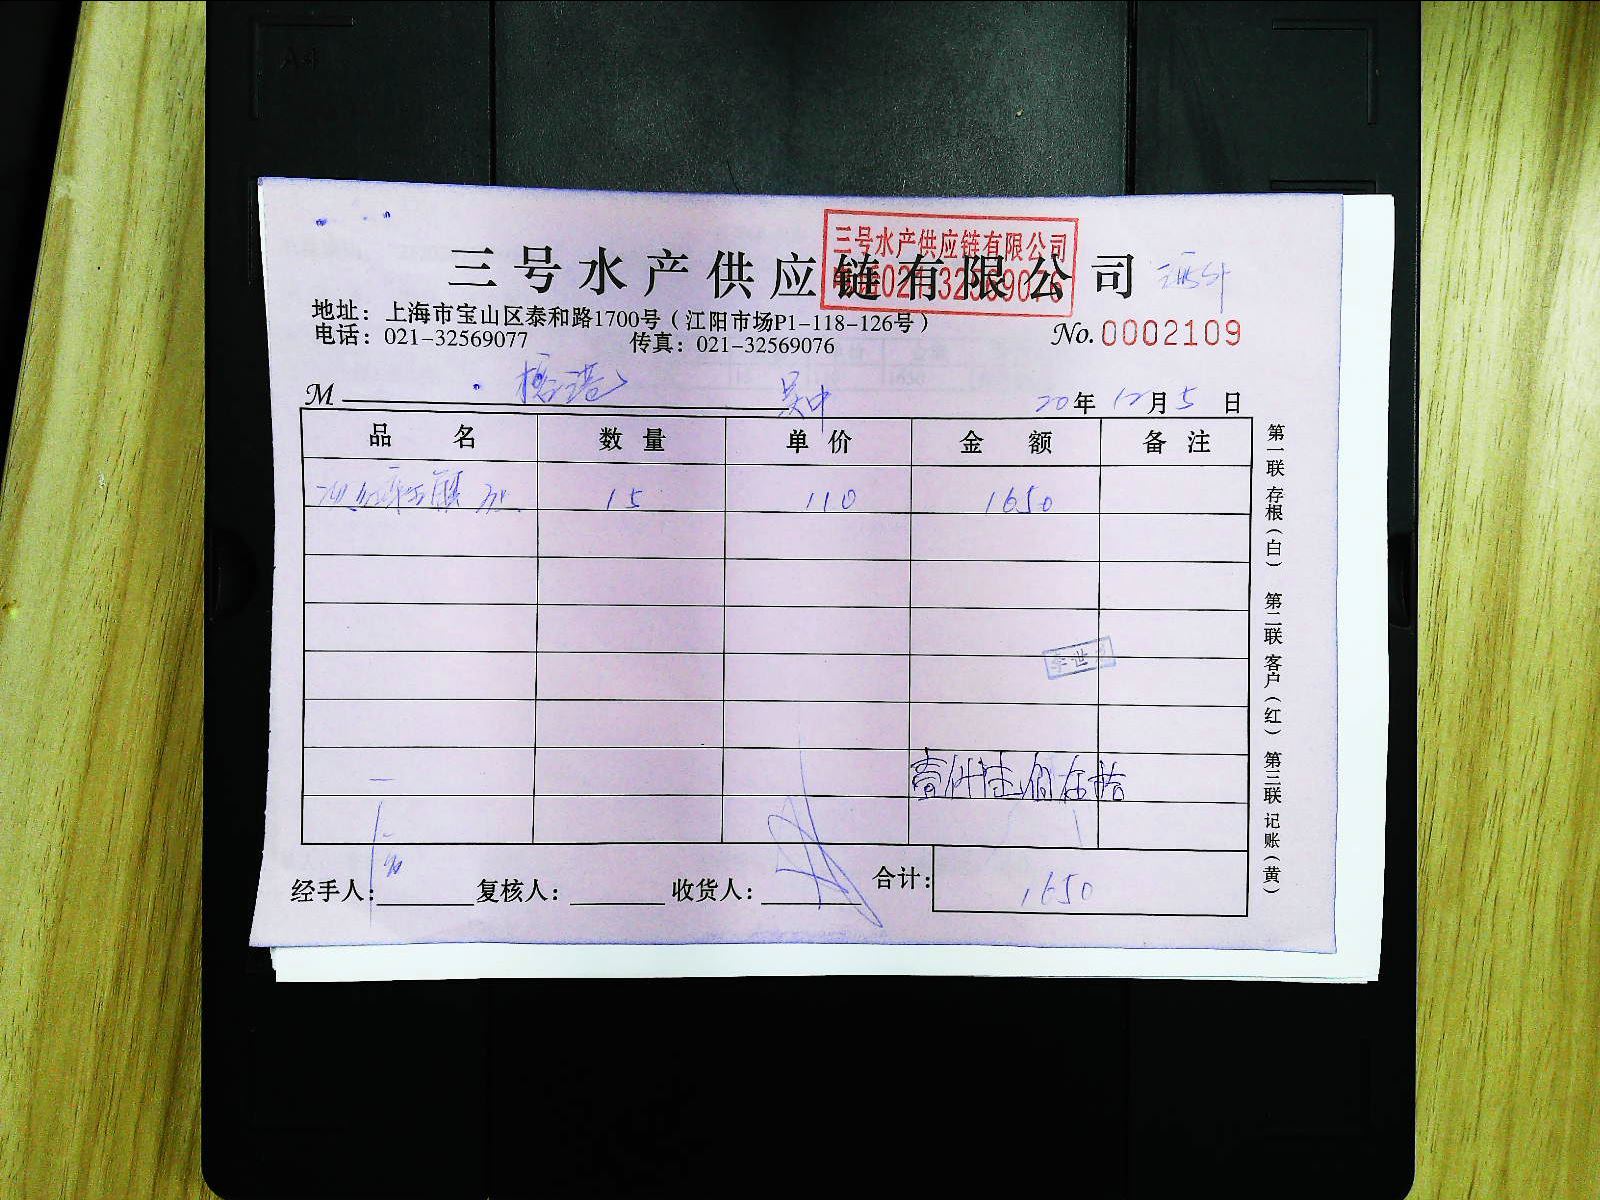 三号水产供应链有限公司
三号水产供应链有限公司
电话021-32569076
地址：上海市宝山区泰和路1700号（江阳市场P1-118-126号）
电话：021-32569077 传真：021-32569076
No.0002109
M 吴中 20年12月5日
品名 数量 单价 金额 备注
15 110 1650
壹仟陆佰伍拾
经手人： 复核人： 收货人： 合计：1650
第一联存根（白） 第二联客户（红） 第三联记账（黄）